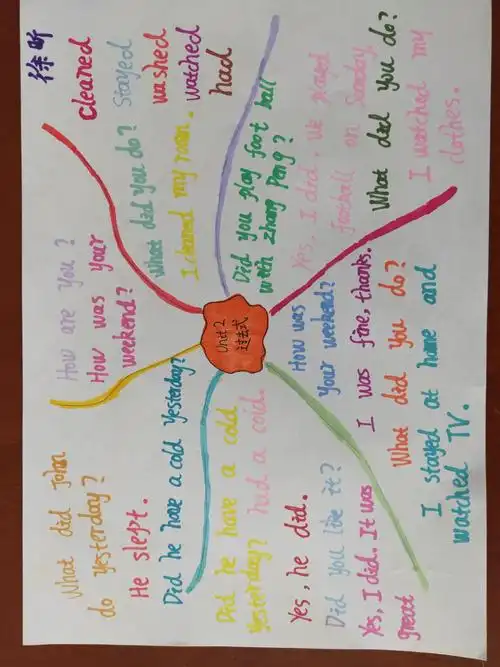 What did John
do yesterday?
He slept.
Did he have a cold yesterday?
How are you?
How was your
weekend?
What did you do?
I cleaned my room.
徐昕
cleaned
stayed
washed
watched
had
Unit 2
过去式
Did he have a cold
yesterday? had a cold.
Yes, he did.
Did you like it?
Yes, I did. It was
great
How was
your weekend?
I was fine, thanks.
What did you do?
I stayed at home and
watched TV.
Did you play foot ball
with Zhang Peng?
Yes, I did. We played
football on Sunday.
What did you do?
I watched my
clothes.